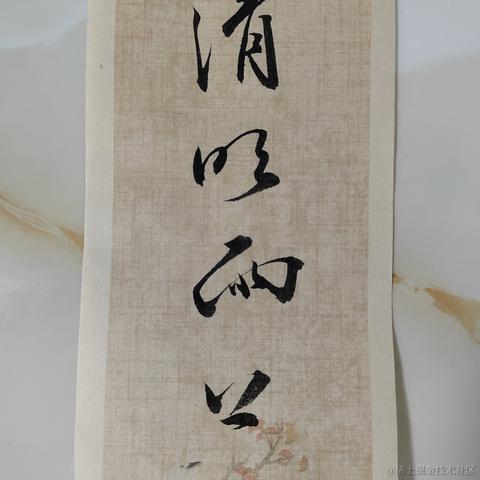 清明雨上
@稀土掘金技术社区